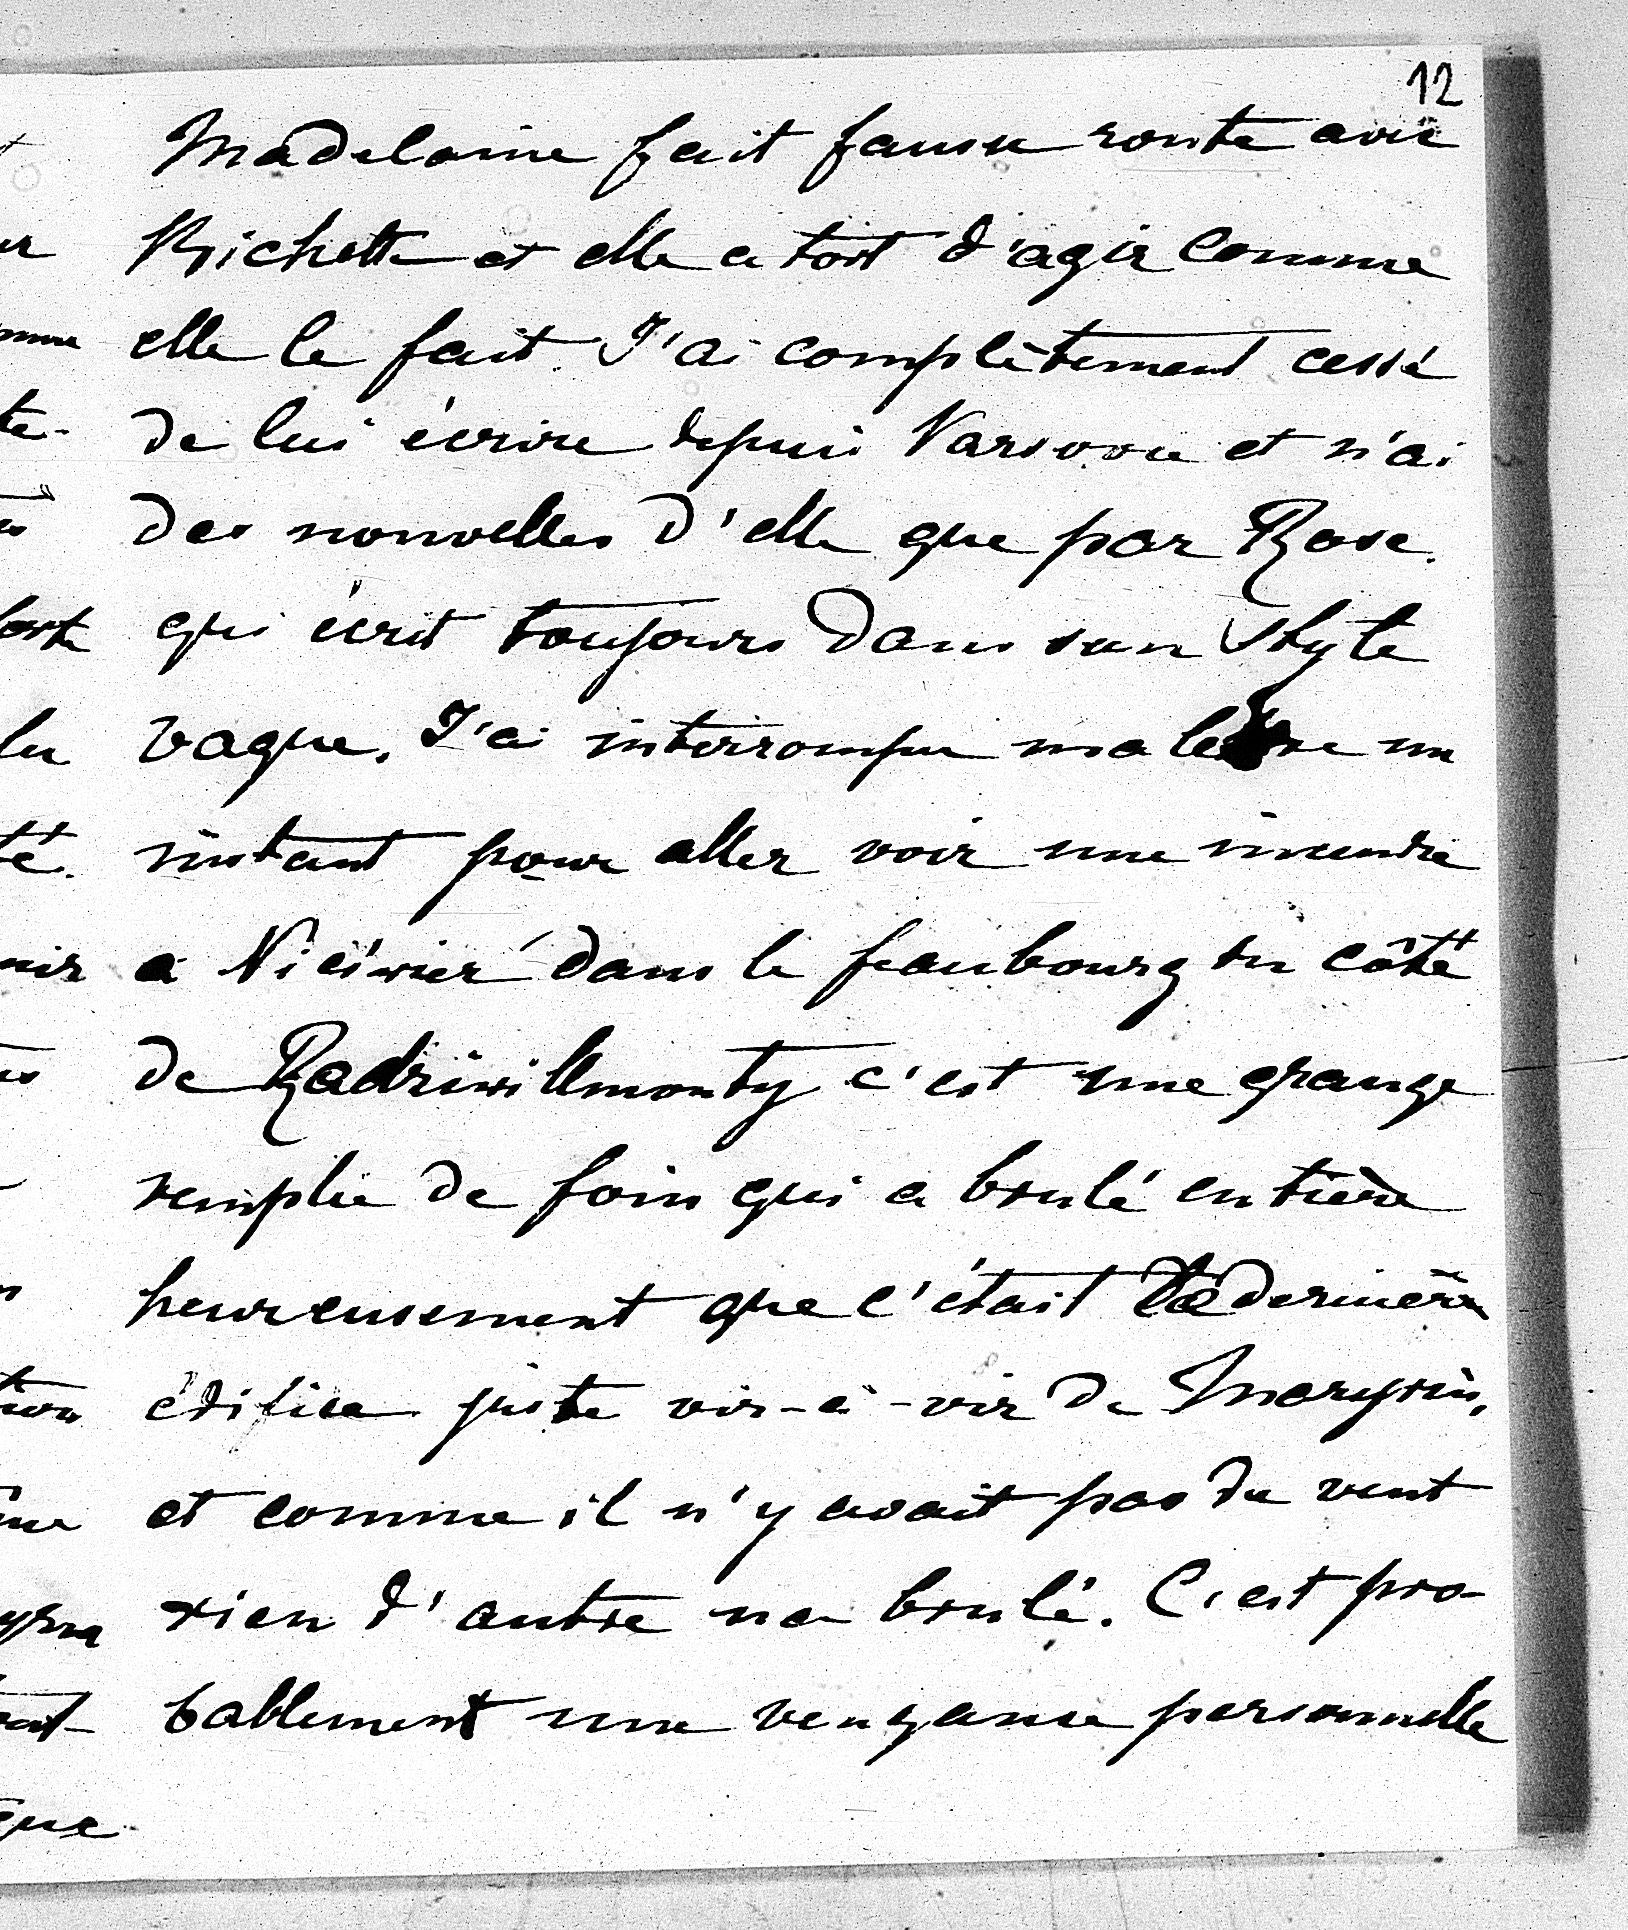 12
Madelaine fait fausse route avec
Bichette et elle a tort d'agir comme
elle le fait. J'ai complètement cessé
de lui écrire depuis Varsovie et n'ai
des nouvelles d'elle que par Rose
qui écrit toujours dans son style
vague. J'ai interrompu ma lettre un
instant pour aller voir une incendie
a Nieświeź dans le faubourg du côté
de Radziwillmonty c'est une grange
remplie de foin qui a brulé entière
heureusement que c'était la dernière
édifice juste vis-à-vis de Marysin,
et comme il n'y avait pas du vent
rien d'autre na brulé. C'est pro-
bablement une vengance personnelle